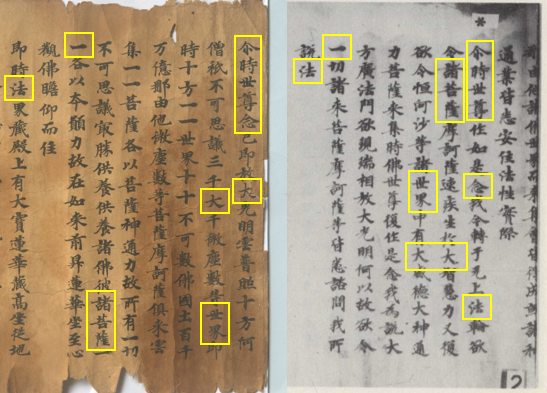 尒時世尊念已即放大光明雲普照十方阿
僧祇不可思議三千大千微塵數等世界即
時十方一一世界十十不可數佛國土百千
万億那由他微塵數等菩薩摩訶薩俱來雲
集一一菩薩各以菩薩神通力故所有一切
不可思議㝡勝供養供養諸佛彼諸菩薩一
一各以本願力故在如來前昇蓮華坐至心
觀佛瞻仰而住
即時法界藏殿上有大寶蓮華藏高座從地
*
通業皆悉安住法性實際
尒時世尊作如是念我今轉于无上法輪欲
令諸菩薩摩訶薩速疾生於大智慧力又復
欲令恒河沙等諸世界中有大威德大神通
力菩薩來集時佛世尊復作是念我為說大
方廣法門欲現瑞相放大光明何以故欲令
一切諸來菩薩摩訶薩等皆悉諮問我所
說法
12